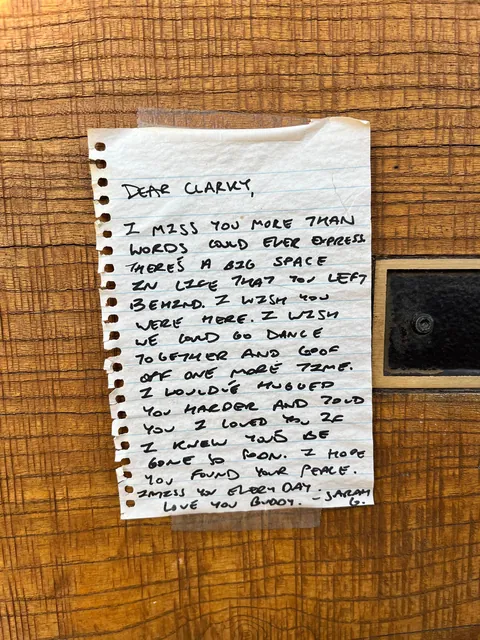 DEAR CLARKY,
I MISS YOU MORE THAN
WORDS COULD EVER EXPRESS
THERE'S A BIG SPACE
IN LIFE THAT YOU LEFT
BEHIND. I WISH YOU
WERE HERE. I WISH
WE COULD GO DANCE
TOGETHER AND GOOF
OFF ONE MORE TIME.
I WOULD'VE HUGGED
YOU HARDER AND TOLD
YOU I LOVED YOU IF
I KNEW YOU'D BE
GONE SO SOON. I HOPE
YOU FOUND YOUR PEACE.
I MISS YOU EVERY DAY.
LOVE YOU BUDDY. - SARAH G.